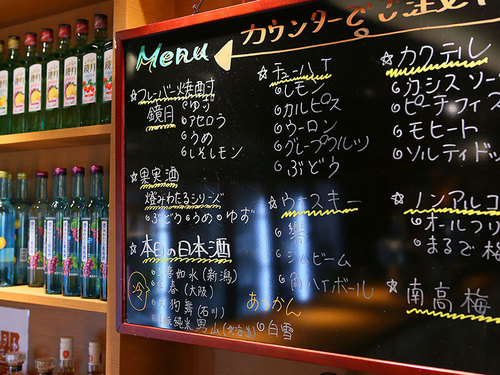 Menu
カウンターでご注文
☆フレーバー焼酎
鏡月
ゆず
アセロラ
うめ
しそレモン
☆果実酒
澄みわたるシリーズ
ぶどう うめ ゆず
☆本日の日本酒
冷
如水(新潟)
春(大阪)
舞(石川)
純米
あつかん
白雪
☆チューハイ
レモン
カルピス
ウーロン
グレープフルーツ
ぶどう
☆ウィスキー
ビーム
角ハイボール
☆カクテル
カシスソー
ピーチフィズ
モヒート
ソルティドッ
☆ノンアルコ
オールフリ
まるで梅
☆南高梅